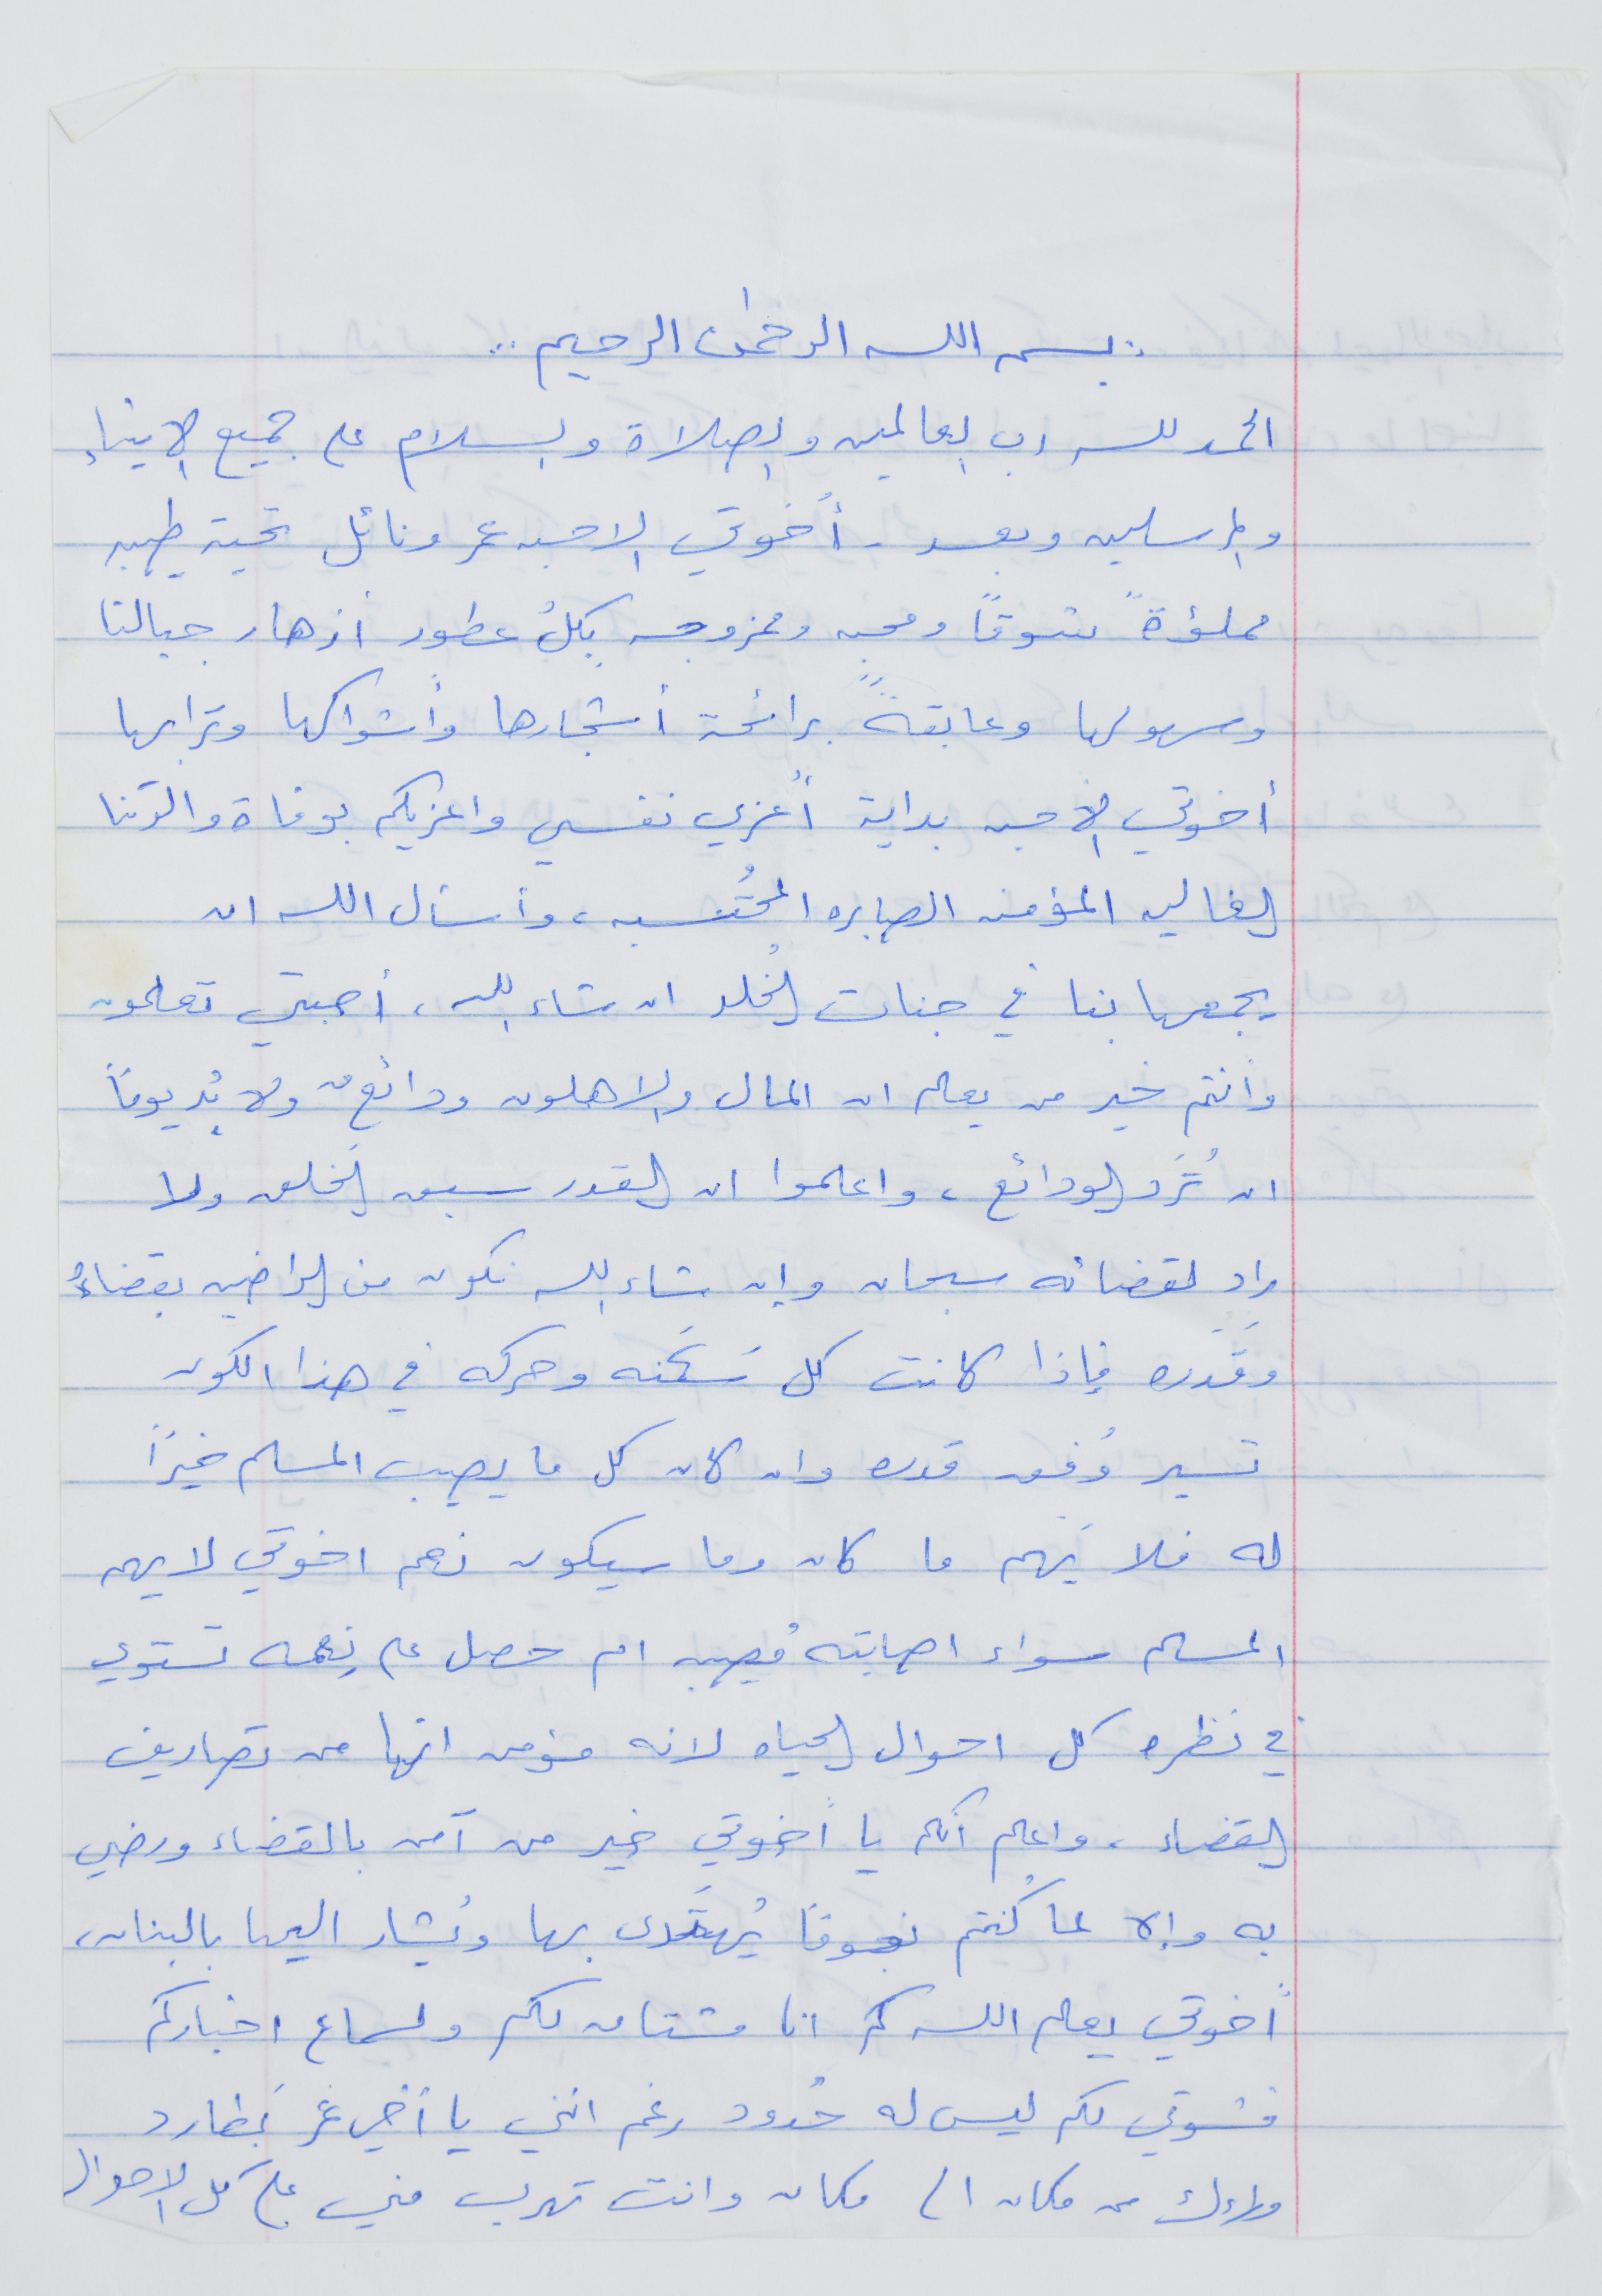 بسم الله الرحمٰن الرحيم ..
الحمد لله رب العالمين والصلاة والسلام على جميع الانبياء
والمرسلين وبعد . أخوتي الاحبه عمر ونائل تحية طيبه
مملؤةً شوقاً ومحبه وممزوجه بكل عطور أزهار جبالنا
وسهولها وعابقةً برائحة أشجارها وأشواكها وترابها
أخوتي الاحبه بداية أعزي نفسي واعزيكم بوفاة والدتنا
الغاليه المؤمنه الصابره المُحتسبه ، وأسأل الله ان
يجمعها بنا في جنات الخُلد ان شاء الله ، أحبتي تعلمون
وأنتم خير من يعلم ان المال والاهلون ودائع ولا بُد يوماً
ان تُرَد الودائع ، واعلموا ان القدر سبق الخلق ولا
راد لقضائه سبحان وإن شاء الله نكون من الراضين بقضاءهُ
وقَدَره فإذا كانت كل سَكنه وحركه في هذا الكون
تسير وُفق قدره وان كان كل ما يصيب المسلم خيراً
له فلا يَهم ما كان وما سيكون نعم اخوتي لا يهم
المسلم سواء اصابته مُصيبه ام حصل على نِعمه تستوي
في نظره كل احوال الحياه لانه مؤمن انها من تصاريف
القضاء ، واعلم أنكم يا أخوتي خير من آمن بالقضاء ورضي
به وإلا لما كُنتم نجوماً يُهتَدى بها ويُشار اليها بالبنان ،
أخوتي يعلم الله كم انا مشتاق لكم ولسماع اخباركم
فشوقي لكم ليس له حُدود رغم انني يا أخي عمر بَطارد
وراءك من مكان الى مكان وانت تهرب مني على كل الاحوال